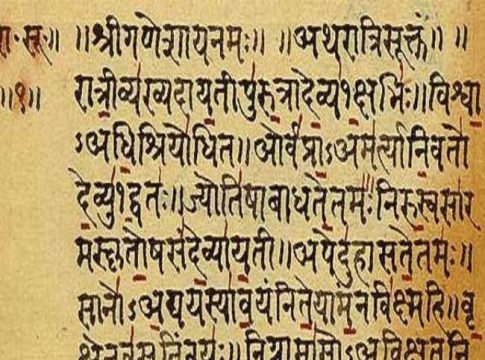 रा॰सू॥ ॥श्रीगणेशायनमः॥ ॥अथरात्रिसूक्तं॥ ॥
॥१॥ रात्रीव्यख्यदायतीपुरुत्रादेव्य१क्षभिः॥विश्वा
ऽअधिश्रियोधित॥ओर्वप्राऽअमर्त्यानिवतो
देव्यु१द्वतः॥ज्योतिषाबाधतेतमः॥निरुस्वसार
मस्कृतोषसंदेव्यायती॥अपेदुहासतेतमः॥
सानोऽअद्ययस्यावयंनितेयामनविक्ष्महि॥वृ
क्षेनवसतिंवयः॥निग्रामासोऽअविक्षतनि